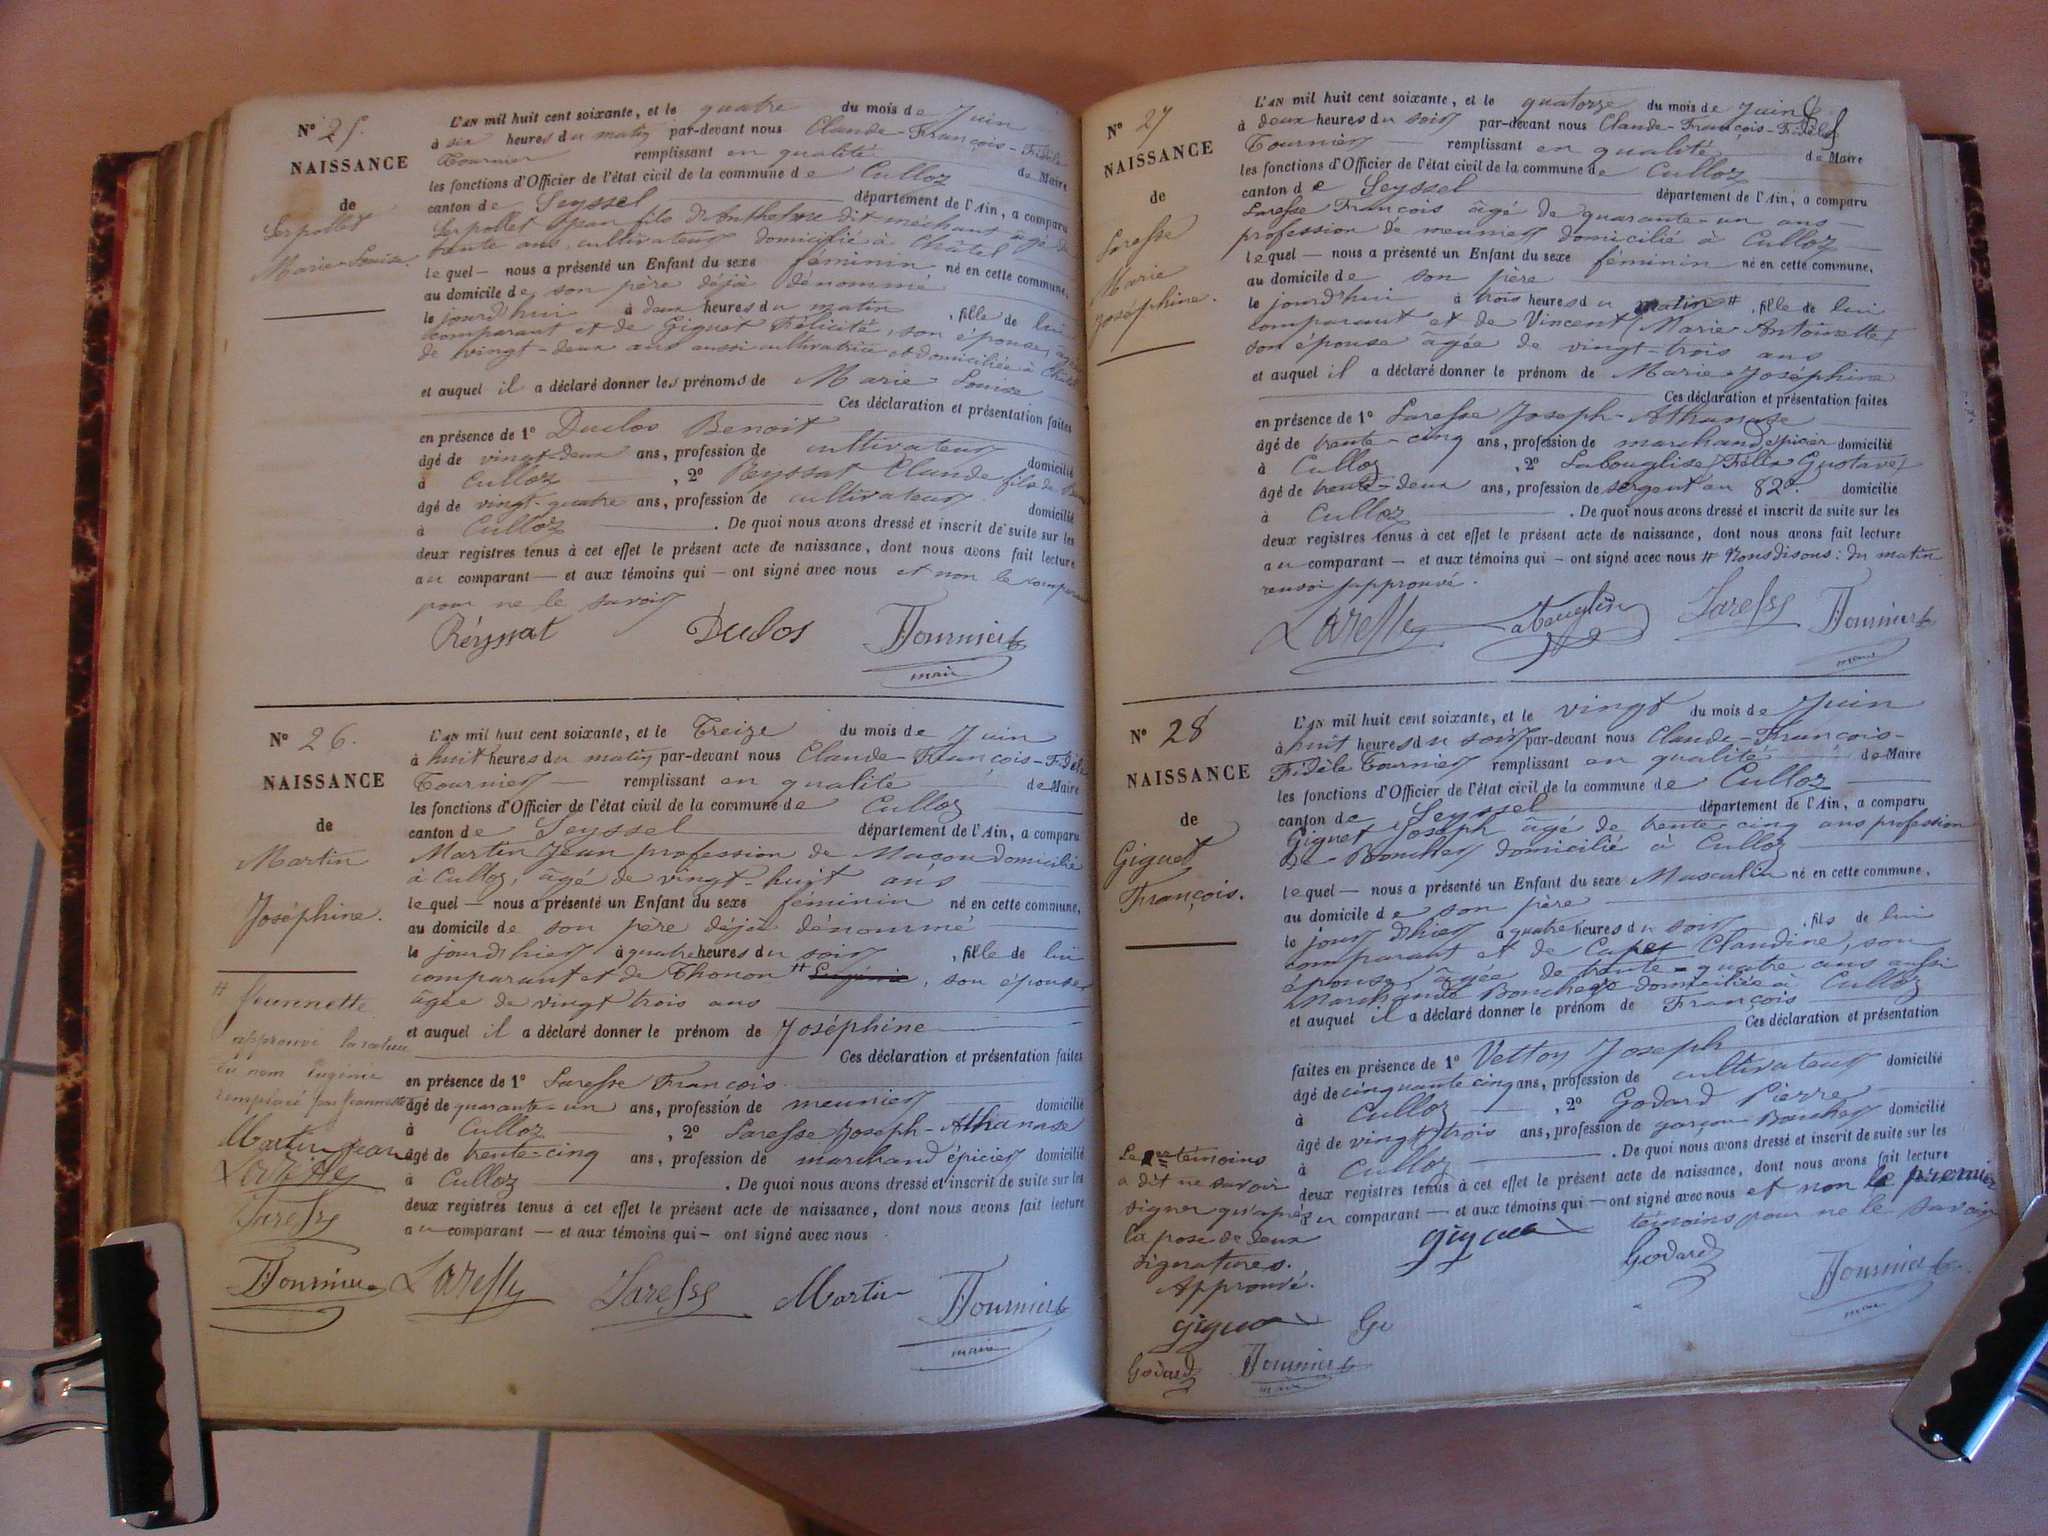 Nº 25.
NAISSANCE
de
Serpollet
Marie-Louise.
L'AN mil huit cent soixante, et le quatre du mois de Juin
à six heures du matin par-devant nous Claude-François-Fidèle
Tournier remplissant en qualité de Maire
les fonctions d'Officier de l'état civil de la commune de Culloz
canton de Seyssel département de l'Ain, a comparu
Serpollet fils d'Anthelme dit méchant âgé de
trente ans, cultivateur domicilié à Châtel
lequel — nous a présenté un Enfant du sexe féminin né en cette commune,
au domicile de son père déjà dénommé
le jourd'hui à deux heures du matin , fille de lui
comparant et de Giguet Félicité, son épouse, âgée
de vingt-deux ans aussi cultivatrice et domiciliée à Châtel
et auquel il a déclaré donner les prénoms de Marie Louise
Ces déclaration et présentation faites
en présence de 1º Duclos Benoit
âgé de vingt-deux ans, profession de cultivateur domicilié
à Culloz , 2º Reyssat Claude fils de
âgé de vingt-quatre ans, profession de cultivateur domicilié
à Culloz . De quoi nous avons dressé et inscrit de suite sur les
deux registres tenus à cet effet le présent acte de naissance, dont nous avons fait lecture
au comparant — et aux témoins qui — ont signé avec nous et non le comparant
pour ne le savoir
Réyssat Duclos Tournier
maire
Nº 26.
NAISSANCE
de
Martin
Joséphine.
# Jeannette
approuvé la rature
du nom Eugénie
remplacé par Jeannette
Martin Jean
Laresse
Laresse
Tournier
L'AN mil huit cent soixante, et le Treize du mois de Juin
à huit heures du matin par-devant nous Claude-François-Fidèle
Tournier remplissant en qualité de Maire
les fonctions d'Officier de l'état civil de la commune de Culloz
canton de Seyssel département de l'Ain, a comparu
Martin Jean profession de Maçon domicilié
à Culloz, âgé de vingt-huit ans
lequel — nous a présenté un Enfant du sexe féminin né en cette commune,
au domicile de son père déjà dénommé
le jour d'hier à quatre heures du soir , fille de lui
comparant et de Thonon # , son épouse
âgée de vingt trois ans
et auquel il a déclaré donner le prénom de Joséphine
Ces déclaration et présentation faites
en présence de 1º Laresse François
âgé de quarante-un ans, profession de meunier domicilié
à Culloz , 2º Laresse Joseph-Athanase
âgé de trente-cinq ans, profession de marchand épicier domicilié
à Culloz . De quoi nous avons dressé et inscrit de suite sur les
deux registres tenus à cet effet le présent acte de naissance, dont nous avons fait lecture
au comparant — et aux témoins qui — ont signé avec nous
Laresse Laresse Martin Tournier
maire
Nº 27
NAISSANCE
de
Laresse
Marie
Joséphine.
L'AN mil huit cent soixante, et le quatorze du mois de Juin
à deux heures du soir par-devant nous Claude-François-Fidèle
Tournier remplissant en qualité de Maire
les fonctions d'Officier de l'état civil de la commune de Culloz
canton de Seyssel département de l'Ain, a comparu
Laresse François âgé de quarante-un ans
profession de meunier domicilié à Culloz
lequel — nous a présenté un Enfant du sexe féminin né en cette commune,
au domicile de son père
le jourd'hui à trois heures du matin # , fille de lui
comparant et de Vincent (Marie Antoinette)
son épouse âgée de vingt-trois ans
et auquel il a déclaré donner le prénom de Marie-Joséphine
Ces déclaration et présentation faites
en présence de 1º Laresse Joseph-Athanase
âgé de trente-cinq ans, profession de marchand épicier domicilié
à Culloz , 2º Labouglise (Félix Gustave)
âgé de trente-deux ans, profession de sergent au 82e. domicilié
à Culloz . De quoi nous avons dressé et inscrit de suite sur les
deux registres tenus à cet effet le présent acte de naissance, dont nous avons fait lecture
au comparant — et aux témoins qui — ont signé avec nous # Nous disons: du matin
renvoi approuvé.
Laresse Laresse Tournier
maire
Nº 28
NAISSANCE
de
Giguet
François.
L'AN mil huit cent soixante, et le vingt du mois de Juin
à huit heures du soir par-devant nous Claude-François-
Fidèle Tournier remplissant en qualité de Maire
les fonctions d'Officier de l'état civil de la commune de Culloz
canton de Seyssel département de l'Ain, a comparu
Giguet Joseph âgé de trente cinq ans profession
de Boucher domicilié à Culloz
lequel — nous a présenté un Enfant du sexe Masculin né en cette commune,
au domicile de son père
le jour d'hier à quatre heures du soir , fils de lui
comparant et de Claudine, son
épouse, âgée de trente-quatre ans aussi
Marchande Bouchere domiciliée à Culloz
et auquel il a déclaré donner le prénom de François
Ces déclaration et présentation
faites en présence de 1º Vettoy Joseph
âgé de cinquante cinq ans, profession de cultivateur domicilié
à Culloz , 2º Godard Pierre
âgé de vingt trois ans, profession de garçon Boucher domicilié
à Culloz . De quoi nous avons dressé et inscrit de suite sur les
deux registres tenus à cet effet le présent acte de naissance, dont nous avons fait lecture
au comparant — et aux témoins qui — ont signé avec nous et non le premier
témoins pour ne le savoir
giguet Godard Tournier
maire
Le témoins
a dit ne savoir
signer qu'après
la pose de deux
signatures.
Approuvé.
giguet Go
Godard Tournier
maire